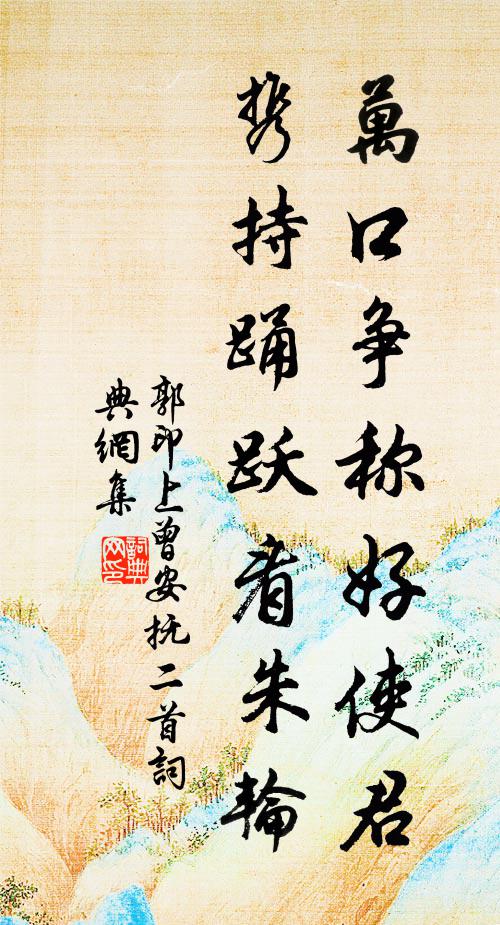 萬口争称好使君
携持踊跃看朱輪
郭印上曾安抚二首詞
典網集
詞典网印